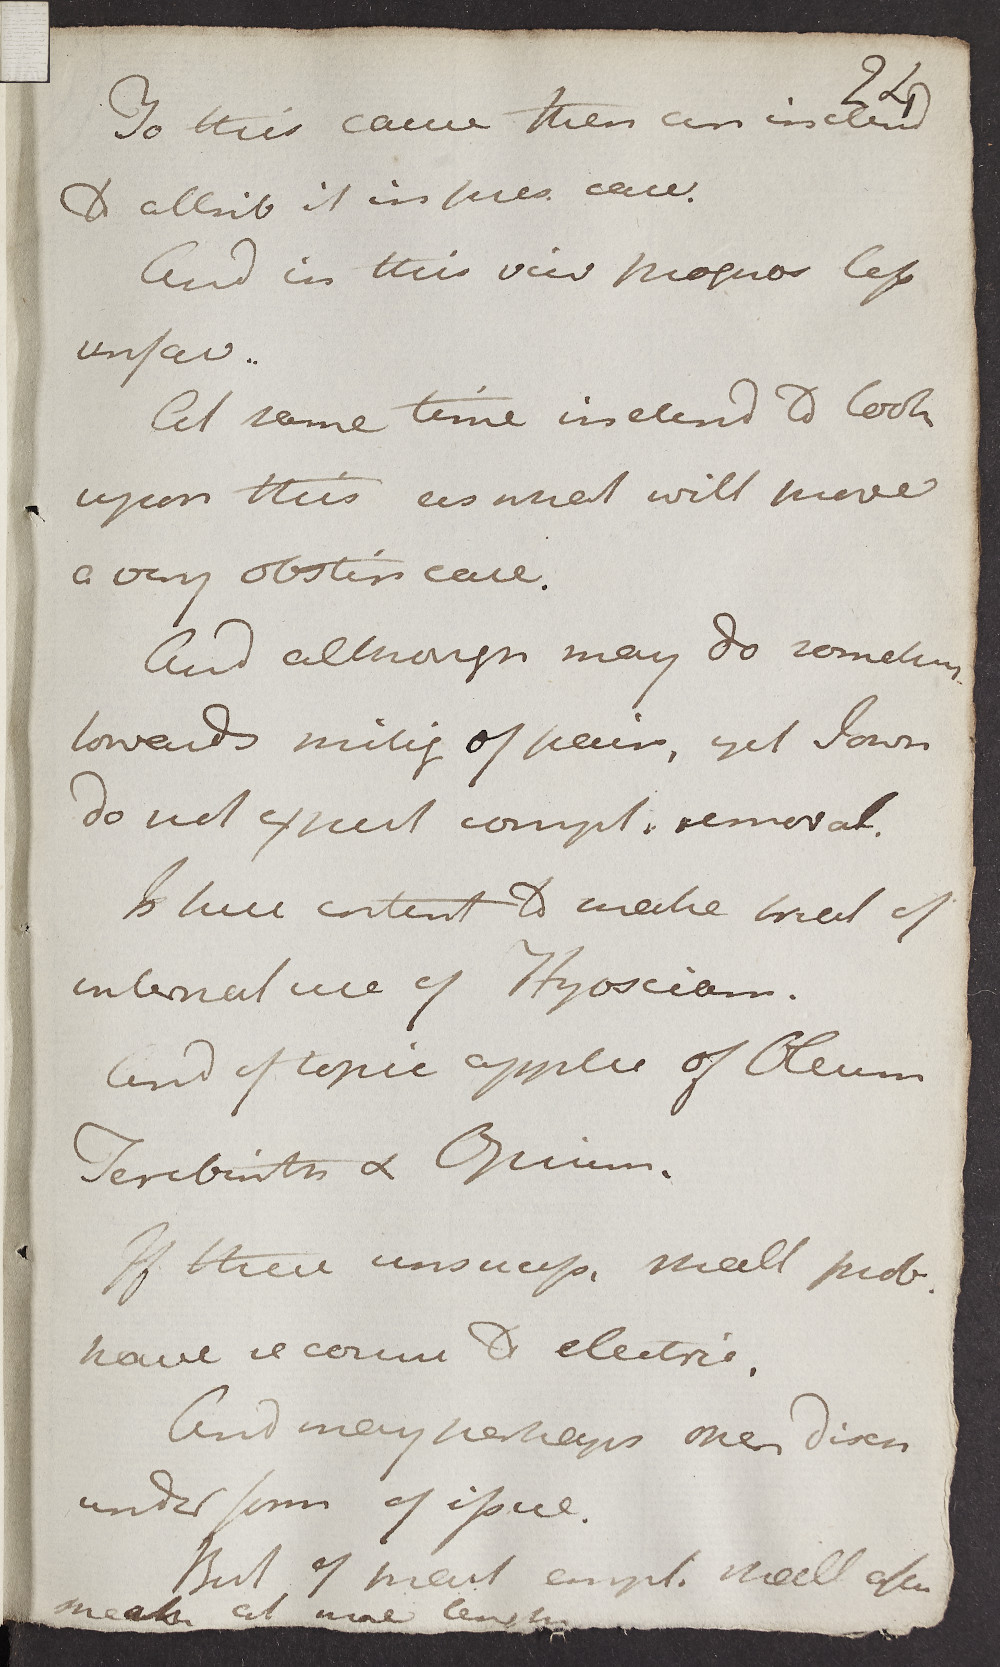 24
To this cause then am inclend
to attrib it in pres. case.
And in this view prognos less
unfav..
At same time inclend to look
upon this as what will prove
a very obstin case.
And although may do somethin
towards mitig of pain, yet I own
do not expect compl. removal.
Is here content to make trial of
internal use of Hyosciam.
And of topic applic of Oleum
Terebinth & Opium.
If these unsucess. shall prob.
have recourse to electric.
And may perhaps open drain
under form of issue.
But of pract empl. shall after
speak at more length